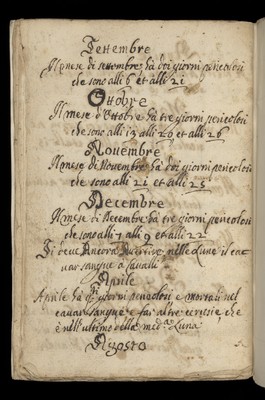 Settembre
Il mese di settembre hà doi giorni pericolosi
che sono alli 6 et alli 21
Ottobre
Il mese d'Ottobre hà tre giorni pericolosi
che sono alli 13 alli 20 et alli 26
Novembre
Il mese di Novembre hà doi giorni pericolosi
che sono alli 21 et alli 25
Decembre
Il mese di Decembre hà tre giorni pericolosi
che sono alli 7 alli 9 et alli 22
Si deve Ancora Avertire nelle Lune il cac
var sangue à Cavalli
Aprile
Aprile hà giorni pericolosi e mortali nel
cavar sangue e far altre che
è nell'ultimo della med.ª Luna
Agosto